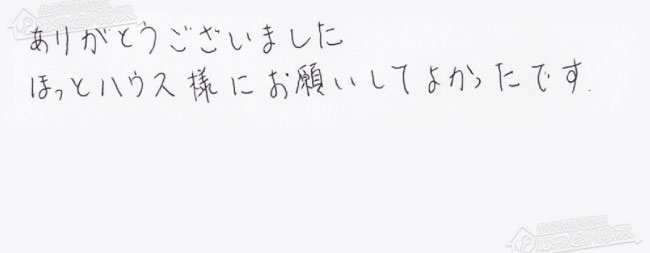 ありがとうございました
ほっとハウス様にお願いしてよかったです.
ほっとハウス